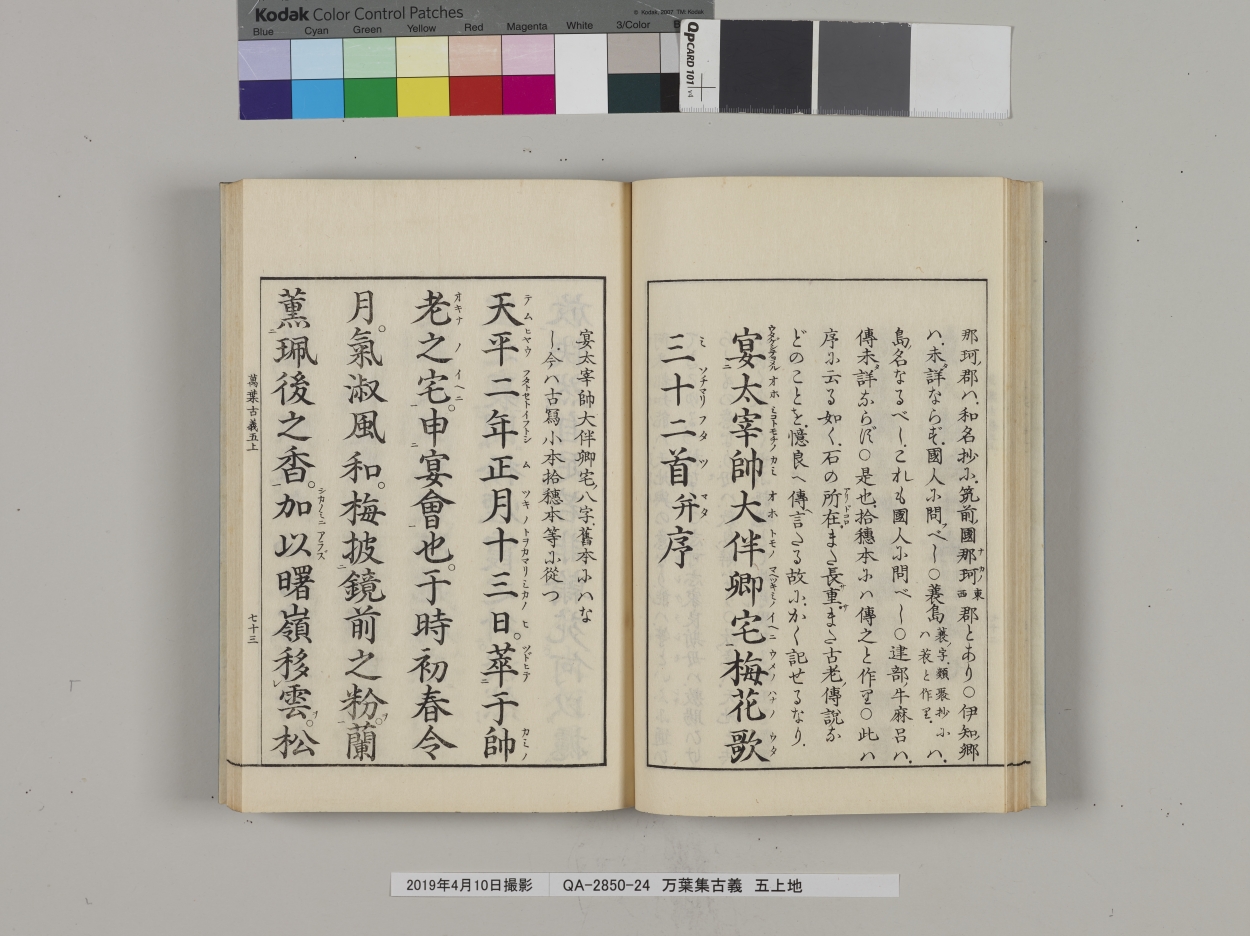 Kodak Color Control Patches
© Kodak, 2007 TM: Kodak
Blue Cyan Green Yellow Red Magenta White 3/Color
QPCARD 101 v4
那珂ノ郡ハ、和名抄ニ、筑前ノ國那珂 ナカノ 東西 郡とあり○伊知ノ郷
ハ、未ダ詳ならず、國人に問ベし○蓑島 蓑ノ字、類聚抄ニハ蓑と作リ、ハ、
島ノ名なるべし、これも國人に問べし○建部ノ牛麻呂ハ、
傳未ダ詳ならず○是也、拾穗本にハ傳之と作リ○此ハ
序に云る如く、石の所在、アリドコロまた長重さまた古老ノ傳説な
どのことを、憶良へ傳言たる故に、かく記せるなり、
宴太宰帥大伴卿宅梅花歌
三十二首并序
宴太宰帥大伴卿宅、八字、舊本にハな
し、今ハ古寫小本拾穗本等に從つ
天平二年正月十三日。萃于帥
老之宅。申宴會也。于時初春令
月。氣淑風和。梅披鏡前之粉。蘭
薫珮後之香。加以曙嶺移雲。松
萬葉古義五上
七十三
2019年4月10日撮影 QA-2850-24 万葉集古義 五上地